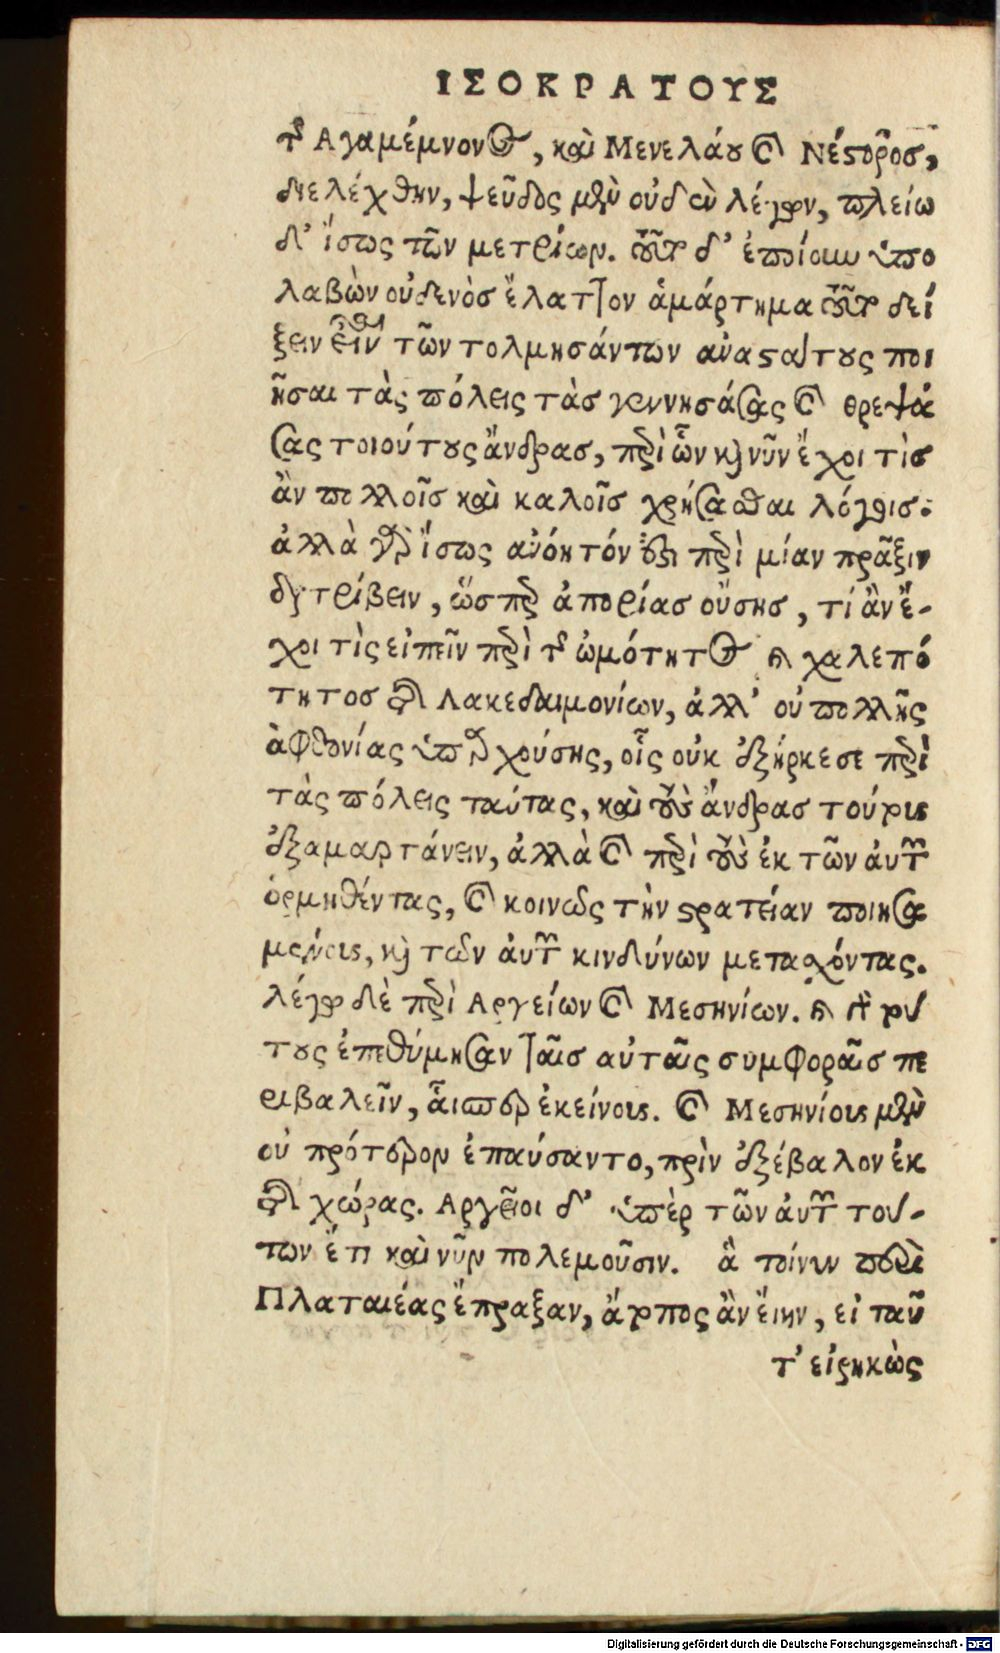 ΙΣΟΚΡΑΤΟΥΣ
τῆς Αγαμέμνονος, καὶ Μενελάου καὶ Νέστορος,
διελέχθην, ψεῦδος μὲν οὐδὲν λέγων, πλείω
δ' ἴσως τῶν μετρίων. τοῦτο δ' ἐποίουν ὑπο
λαβὼν οὐδενὸσ ἔλαττον ἁμάρτημα τοῦτο δεί
ξειν εἶναι τῶν τολμησάντων ἀναστάτους ποι
ῆσαι τὰς πόλεις τὰσ γεννησάσας καὶ θρεψά
σας τοιούτους ἄνδρασ, περὶ ὧν καὶ νῦν ἔχοι τὶσ
ἂν πολλοῖσ καὶ καλοῖσ χρήσασθαι λόγοισ.
ἀλλὰ γὰρ ἴσως ἀνόητόν ἐστι περὶ μίαν πρᾶξιν
διατρίβειν, ὥσπερ ἀπορίασ οὔσησ, τί ἂν ἔ-
χοι τὶς εἰπεῖν περὶ τῆς ὠμότητος καὶ χαλεπό
τητοσ τῆς Λακεδαιμονίων, ἀλλ' οὐ πολλῆς
ἀφθονίας ὑπαρχούσης, οἷς οὐκ ἐξήρκεσε περὶ
τὰς πόλεις ταύτας, καὶ τοὺς ἄνδρασ τούτοις
ἐξαμαρτάνειν, ἀλλὰ καὶ περὶ τοὺς ἐκ τῶν ἀυτῶν
ὁρμηθέντας, καὶ κοινῶς τὴν στρατείαν ποιησα
μένοις, καὶ τῶν ἀυτῶν κινδύνων μετασχόντας.
λέγω δὲ περὶ Αργείων καὶ Μεσηνίων. καὶ γὰρ τού
τους ἐπεθύμησαν ταῖσ αὐταῖς συμφοραῖσ πε
ριβαλεῖν, αἷσπερ ἐκείνοις. καὶ Μεσηνίοις μὲν
οὐ πρότερον ἐπαύσαντο, πρὶν ἐξέβαλον ἐκ
τῆς χώρας. Αργεῖοι δ' ὑπὲρ τῶν ἀυτῶν τού-
των ἔτι καὶ νῦν πολεμοῦσιν. ἃ τοίνυν περὶ
Πλαταιέας ἔπραξαν, ἄτοπος ἂν ἔιην, εἰ ταῦ
τ' εἰρηκὼς
Digitalisierung gefördert durch die Deutsche Forschungsgemeinschaft - DFG